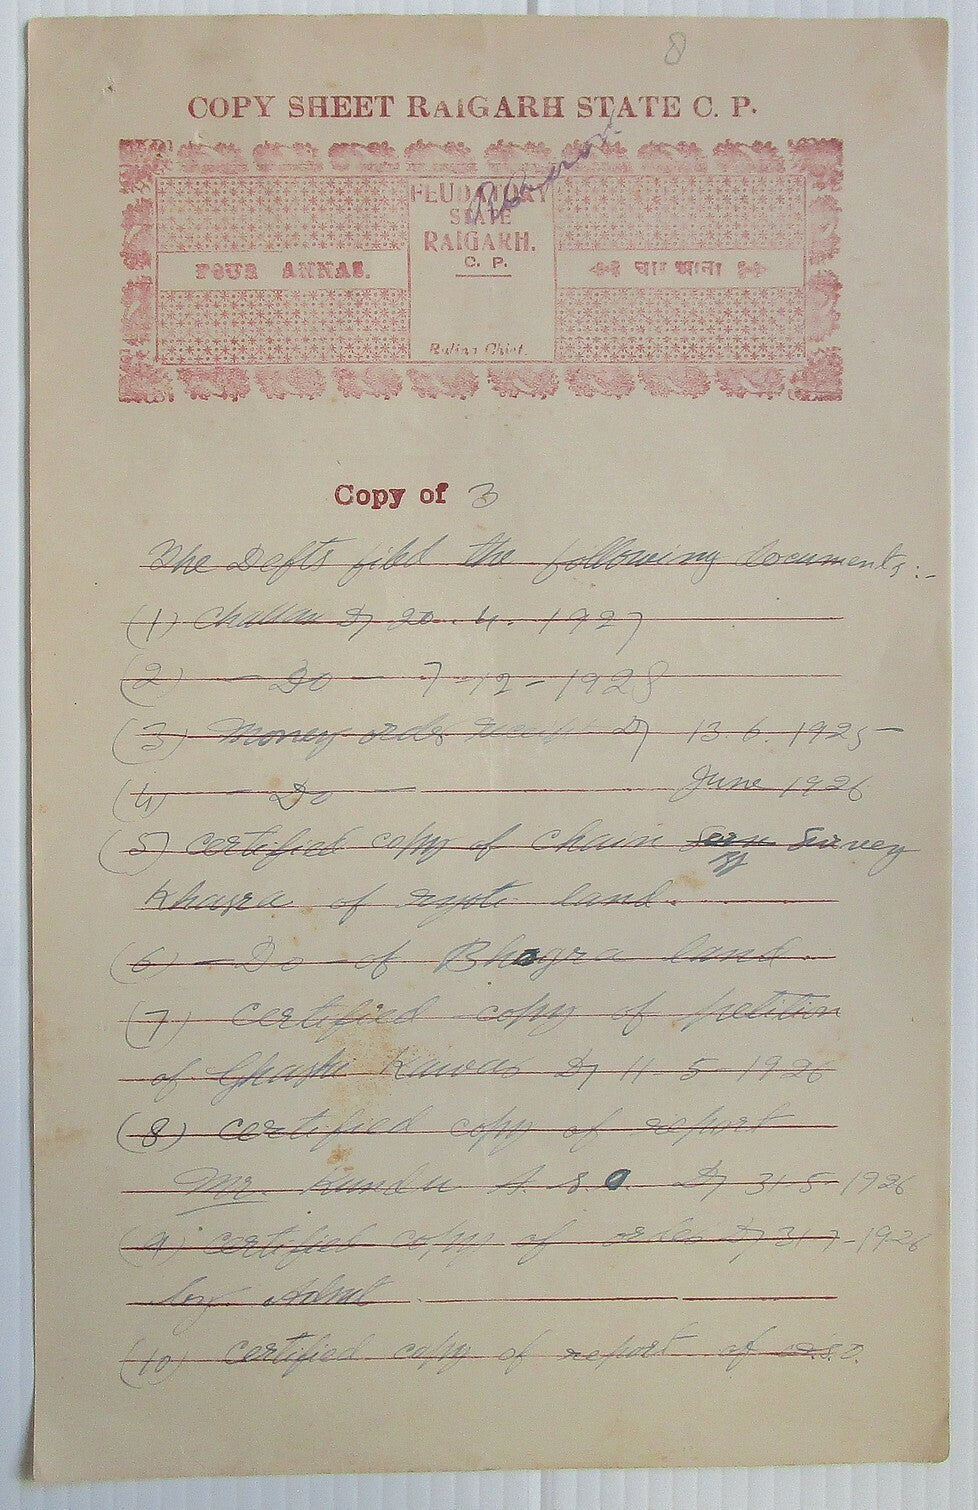 8
COPY SHEET RAIGARH STATE C. P.
FEUDATORY
STATE
RAIGARH.
C. P.
FOUR ANNAS.
चार आना
Ruling Chief.
Copy of 3
The Defts filed the following documents:-
(1) Challan D/ 20. 4. 1927
(2) - Do - 7-12-1928
(3) Money order receipt D/ 13. 6. 1925-
(4) - Do - June 1926
(5) certified copy of chain Survey
Khasra of ryoti land.
(6) - Do - of Bhogra land.
(7) certified copy of petition
of Ghashi Kawar D/ 11-5-1926
(8) certified copy of report
Mr. Kundu A. S. O. D/ 31-5-1926
(9) certified copy of order D/ 31-7-1926
by
(10) certified copy of report of A.S.O.